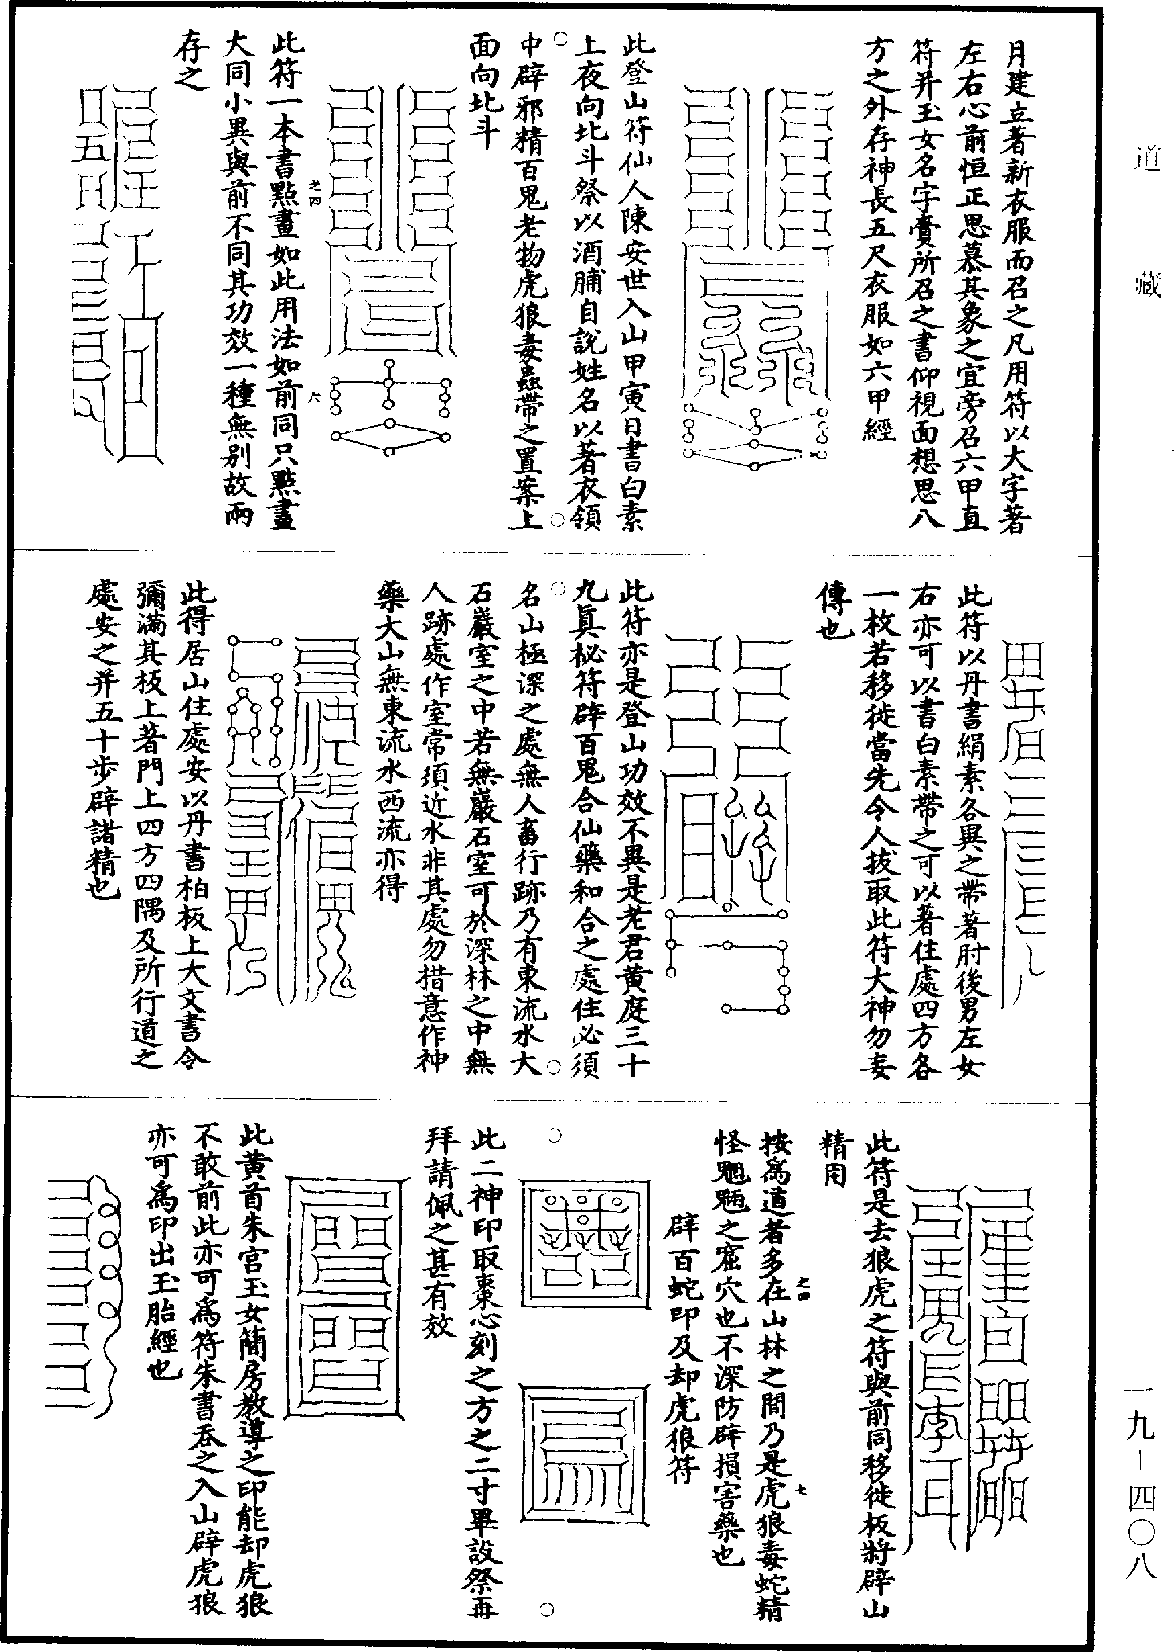 道藏
月建立著新衣服而召之凡用符以大字著
左右心前恒正思慕其象之宜旁召六甲直
符并玉女名字賷所召之書仰視面想思八
方之外存神長五尺衣服如六甲經
此登山符仙人陳安世入山甲寅日書白素
上夜向北斗祭以酒脯自說姓名以著衣領
中辟邪精百鬼老物虎狼毒蟲帶之置案上
面向北斗
之四
六
此符一本書點畫如此用法如前同只點畫
大同小異與前不同其功效一種無别故兩
存之
此符以丹書絹素各異之帶著肘後男左女
右亦可以書白素帶之可以著住處四方各
一枚若移徙當先令人拔取此符大神勿妄
傳也
此符亦是登山功效不異是老君黄庭三十
九真秘符辟百鬼合仙藥和合之處住必須
名山極深之處無人畜行跡乃有東流水大
石巖室之中若無巖石室可於深林之中無
人跡處作室常須近水非其處勿措意作神
藥大山無東流水西流亦得
此得居山住處安以丹書柏板上大文書令
彌滿其板上著門上四方四隅及所行道之
處安之并五十步辟諸精也
此符是去狼虎之符與前同移徙板將辟山
精用
按為道者多在山林之間乃是虎狼毒蛇精
怪魍魎之窟穴也不深防辟損害藥也
之四
七
辟百蛇印及却虎狼符
此二神印取棗心刻之方之二寸畢設祭再
拜請佩之甚有效
此黄首朱宫玉女簡房教導之印能却虎狼
不敢前此亦可為符朱書吞之入山辟虎狼
亦可為印出玉胎經也
一九－四〇八